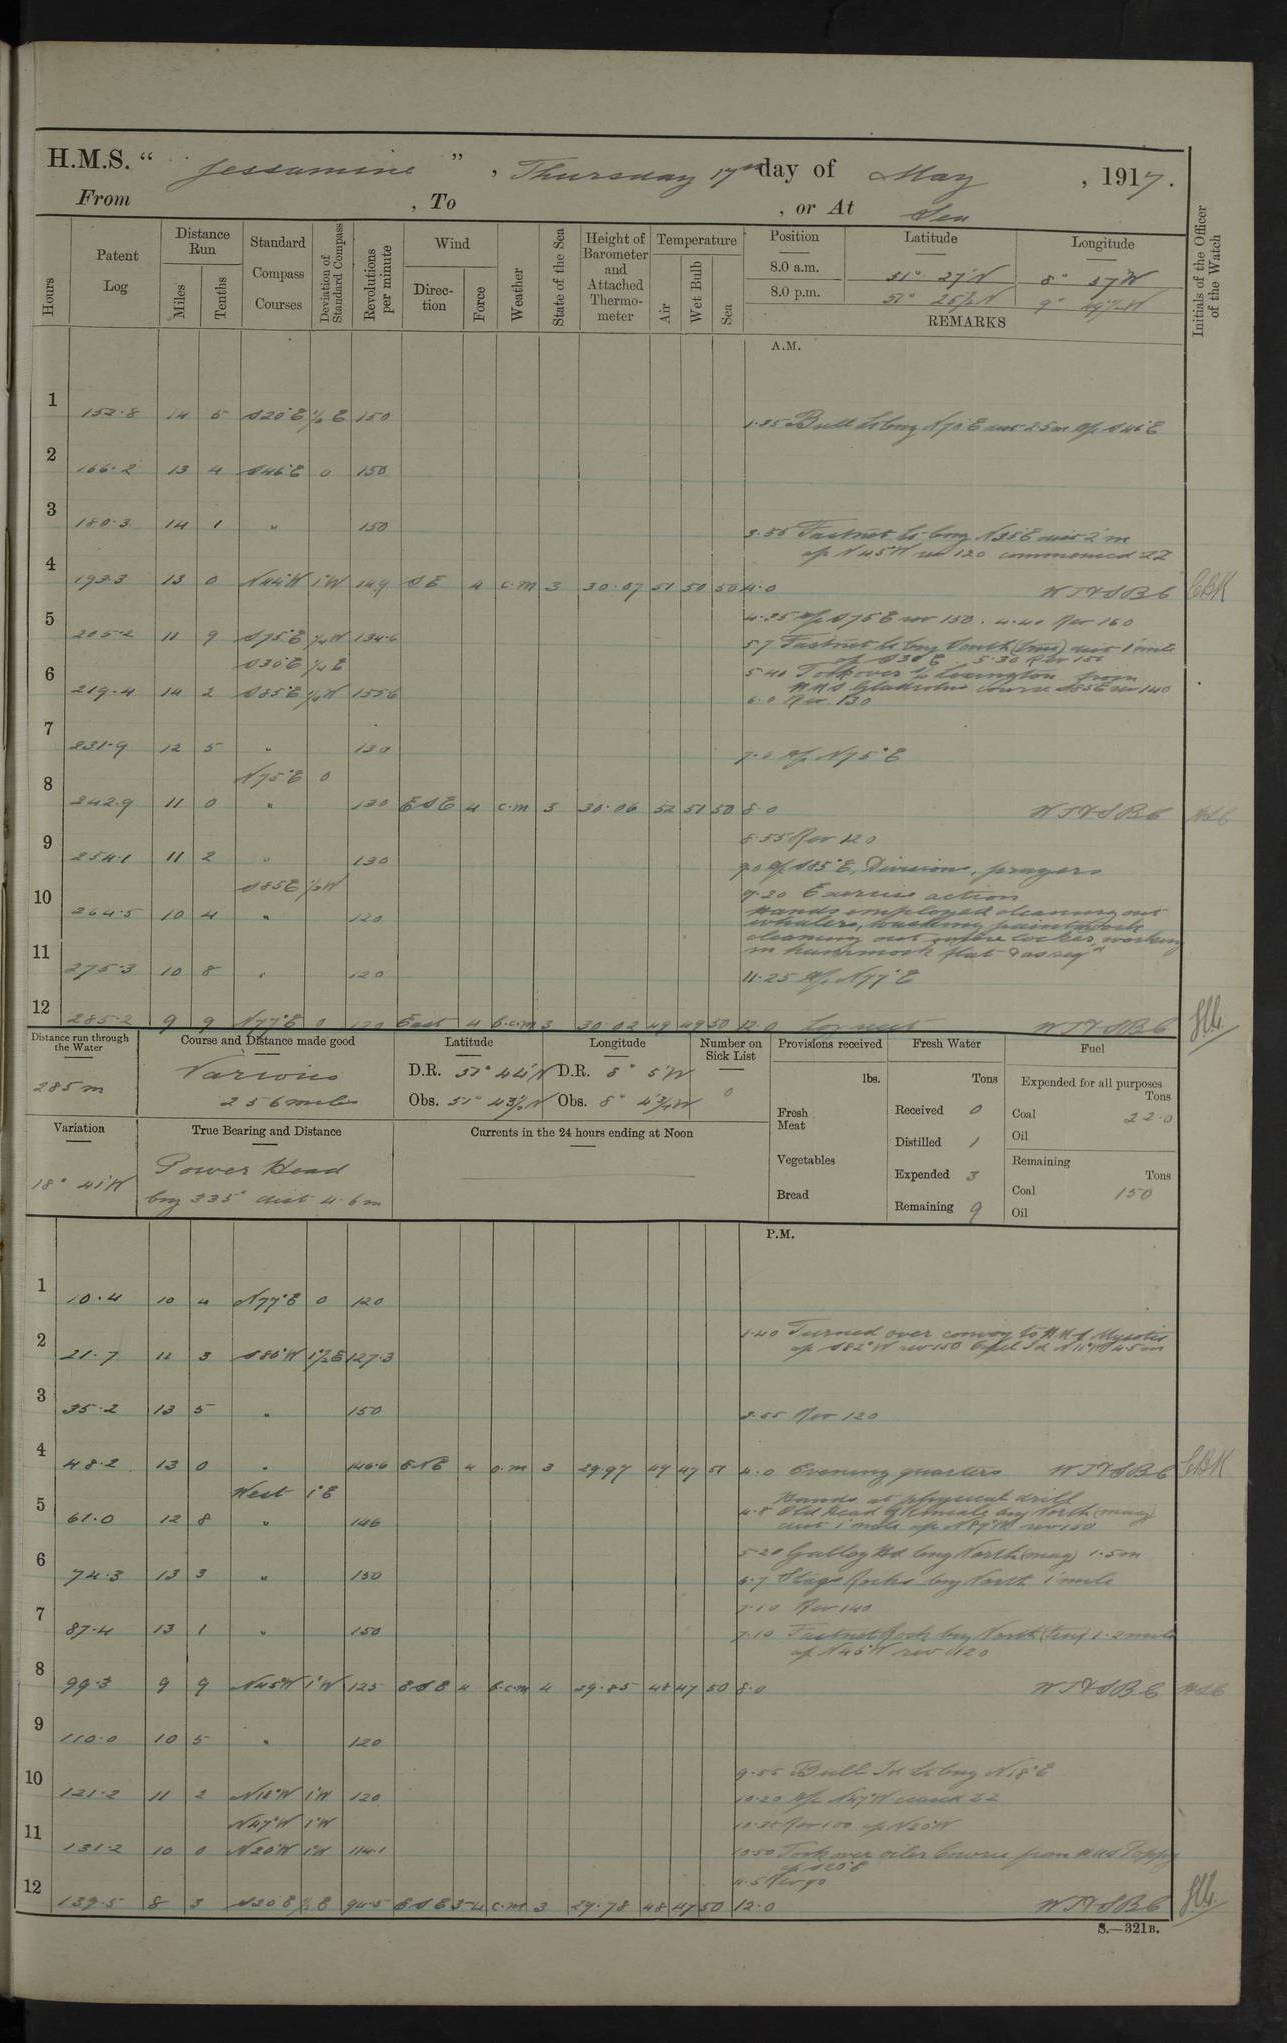 H.M.S. “ Jessamine ” , Thursday 17th day of May , 1917.
From , To , or At Sea
Hours
Patent Log
Distance Run
Miles
Tenths
Standard Compass Courses
Deviation of Standard Compass
Revolutions per minute
Wind
Direction
Force
Weather
State of the Sea
Height of Barometer and Attached Thermometer
Temperature
Air
Wet Bulb
Sea
Position Latitude Longitude
8.0 a.m. 51° 27'N 8° 37'W
8.0 p.m. 51° 25½N 9°
REMARKS
Initials of the Officer of the Watch
A.M.
1 152.8 14 5 S20°E ½E 150
1.35 Bull Lt brg N70°E dist 2.5m a/c S46°E
2 166.2 13 4 S46°E 0 150
3 180.3 14 1 " 150
3.55 Fastnet Lt brg N35°E dist 2 m
a/c N45°W rev 120 commenced ZZ
4 193.3 13 0 N44°W 1°W 149 SE 4 c.m 3 30.07 51 50 50 4.0 WT&SBC CBK
4.35 a/c S75E rev 150. 4.40 Rev 160
5 205.2 11 9 S75°E ¼W 134.6
5.7 Fastnet Lt brg South (true) dist 1 mile
S30°E ¼E
a/c S30°E 5.30 Rev 150
5.40 Took over S/S Lexington from
6 219.4 14 2 S85°E ¼W 155.6
HMS Gladiolus course S85E rev 140
6.0 Rev. 130
7 231.9 12 5 " 130
7.0 a/c N75°E
N75°E 0
8 242.9 11 0 " 130 ESE 4 c.m 3 30.06 52 51 50 8.0 WT&SBC
8.55 Rev 120
9 254.1 11 2 " 130
9.0 a/c S85°E, Divisions, prayers
S85E ½W
9.20 Exercise action
10 264.5 10 4 " 120
Hands employed cleaning out
whalers, washing paintwork
cleaning out wire locker, working
in hammock flat & as reqd
11 275.3 10 8 " 120
11.25 a/c N77°E
12 285.2 9 9 N77°E 0 120 East 4 b.c.m 3 30.02 49 49 50 12.0 WT&SBC
Distance run through the Water
285 m
Course and Distance made good
Various
256 miles
Latitude
D.R. 51° 44'N
Obs. 51° 43½'N
Longitude
D.R. 8° 5'W
Obs. 8° 4¾'W
Number on Sick List
0
Provisions received
lbs.
Fresh Meat
Vegetables
Bread
Fresh Water
Tons
Received 0
Distilled 1
Expended 3
Remaining 9
Fuel
Expended for all purposes
Tons
Coal 22.0
Oil
Remaining
Tons
Coal 150
Oil
Variation
18° 41'W
True Bearing and Distance
Power Head
brg 335° dist 4.6m
Currents in the 24 hours ending at Noon
P.M.
1 10.4 10 4 N77°E 0 120
1.40 Turned over convoy to HMS Myosotis
2 21.7 11 3 S80°W 1½E 127.3
3 35.2 13 5 " 150
3.55 Rev 120
4 48.2 13 0 " 146.6 ENE 4 o.m 3 29.97 47 47 51 4.0 Evening quarters WT&SBC CBK
West 1°E
Hands at physical drill
5 61.0 12 8 " 146
4.8 Old Head of Kinsale brg North (mag)
dist 1 mile a/c N89°W rev 150
5.20 Galley Hd brg North (mag) 1.5m
6 74.3 13 3 " 150
6.7 Stags Rocks brg North 1 mile
7.10 Rev 140
7 87.4 13 1 " 150
7.10 Fastnet Rock brg North (true) 1.2 miles
a/c N45°W rev 120
8 99.3 9 9 N45°W 1°W 125 ESE 4 b.c.m 4 29.85 48 47 50 8.0 WT&SBC
9 110.0 10 5 " 120
9.55 Bull Id Lt brg N18°E
10 121.2 11 2 N18°W 1°W 120
10.20 a/c N47°W ceased ZZ
N47°W 1°W
10.35 Rev 100 a/c N20°W
11 131.2 10 0 N20°W 1°W 114.1
10.50 Took over oiler Cowrie from HMS Poppy
a/c S20°E
11.5 Rev 90
12 139.5 8 3 S20°E ½E 94.5 ESE 3-4 c.m 3 29.78 48 47 50 12.0 WT&SBC
S.—321B.